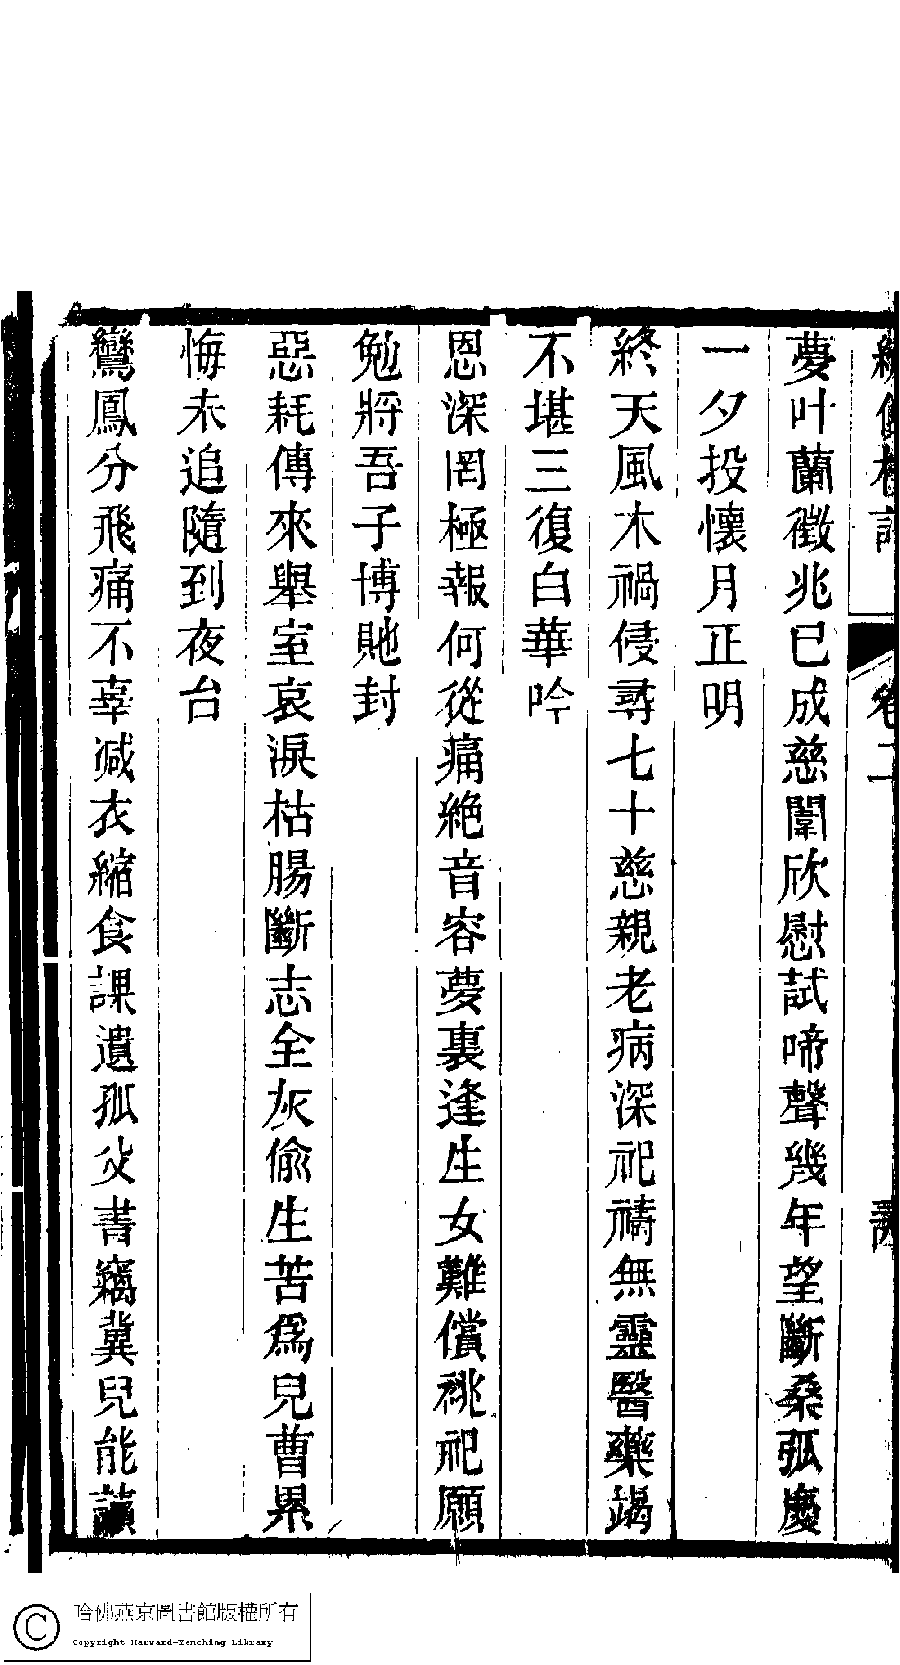 卷二
夢叶蘭徵兆已成慈闈欣慰試啼聲幾年望斷桑弧慶
一夕投懷月正明
終天風木禍侵尋七十慈親老病深祀禱無靈醫藥竭
不堪三復白華吟
恩深罔極報何從痛絶音容夢裏逢生女難償祧祀願
勉將吾子博貤封
惡耗傳來舉室哀淚枯腸斷志全灰偷生苦爲兒曹累
悔未追隨到夜台
鸞鳳分飛痛不辜減衣縮食課遺孤父書竊冀兒能讀
哈佛燕京圖書館版權所有
Copyright Harvard-Yenching Library